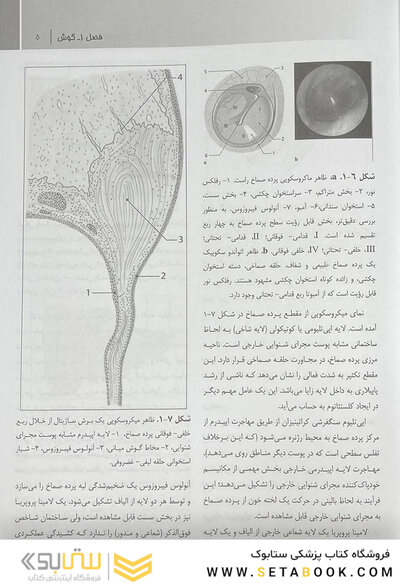 فصل ۱ـ گوش
۵
4
3
2
1
شکل ۷-۱. ظاهر میکروسکوپی یک برش ساژیتال از خلال ربع
خلفی- فوقانی پرده صماخ، ۱- لایه اپیدرم مشابه پوست مجرای
شنوایی، ۲- مخاط گوش میانی، ۳- آنولوس فیبروزوس، ۴- شیار
استخوانی حلقه لیفی- غضروفی.
آنولوس فیبروزوس یک ضخیم‌شدگی لبه پرده صماخ را می‌سازد
و توسط هر دو لایه از الیاف تشکیل می‌شود، یک لامینا پروپریا
نیز در بخش سست قابل مشاهده است، ولی ساختمان شاخص
فوق‌الذکر (شعاعی و مدور) را ندارد که کشیدگی عملکردی
5
3
4
1
2
6
I
II
III
IV
a
b
شکل ۶-۱. a، ظاهر ماکروسکوپی پرده صماخ راست. ۱- رفلکس
نور، ۲- بخش متراکم، ۳- سراستخوان چکشی، ۴- بخش سست،
۵- استخوان سندانی، ۶- آمبو، ۷- آنولوس فیبروزوس. به منظور
بررسی دقیق‌تر، بخش قابل رؤیت سطح پرده صماخ به چهار ربع
تقسیم شده است. I، قدامی- فوقانی؛ II، قدامی- تحتانی؛
III، خلفی- تحتانی؛ IV، خلفی فوقانی. b، ظاهر اتواندو سکوپیک
یک پرده صماخ طبیعی و شفاف. حلقه صماخی، دسته استخوان
چکشی، و زائده کوتاه استخوان چکشی مشهود هستند. رفلکس نور
قابل رؤیت است که از آمبو تا ربع قدامی- تحتانی وجود دارد.
نمای میکروسکوپی از مقطع پرده صماخ در شکل ۷-۱
آمده است. لایه اپی‌تلیومی یا کوتیکولی (لایه شاخی) به لحاظ
ساختمانی مشابه پوست مجرای شنوایی خارجی است. ناحیه
مرزی پرده صماخ، در مجاورت حلقه صماخی قرار دارد. این
مقطع تکثیر به شدت فعالی را نشان می‌دهد که ناشی از رشد
پاپیلاری به داخل لایه زایا می‌باشد. این یک عامل مهم دیگر
در ایجاد کلستئاتوم به حساب می‌آید.
اپی‌تلیوم سنگفرشی کراتینیزان از طریق مهاجرت اپیدرم از
مرکز پرده صماخ به محیط رژنره می‌شود (که این برخلاف
تفلس سطحی است که در پوست دیگر مناطق روی می‌دهد).
مهاجرت لایه اپیدرمی خارجی بخش مهمی از مکانیسم
خودپاک‌کننده مجرای شنوایی خارجی را تشکیل می‌دهد؛ این
فرآیند به لحاظ بالینی در حرکت یک لخته خون از پرده صماخ
به مجرای شنوایی خارجی قابل مشاهده است.
لامینا پروپریا یک لایه شعاعی خارجی از الیاف و یک لایه
ستابوک
فروشگاه اینترنتی کتاب
فروشگاه کتاب پزشکی ستابوک
WWW.SETABOOK.COM